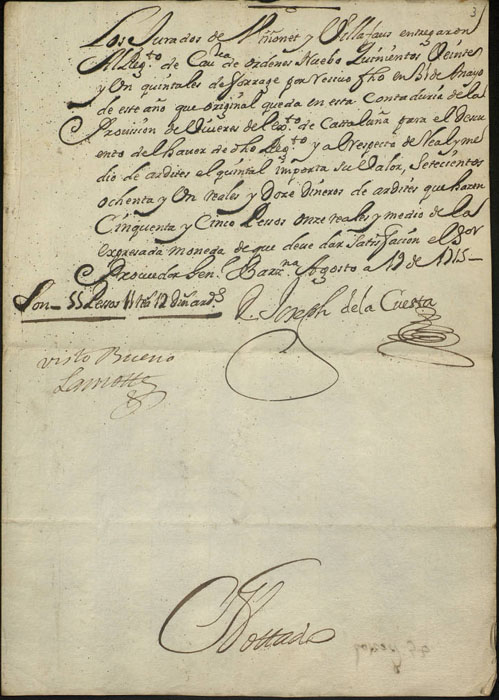 3
Los Jurados de Miñonet y Villafaus entregaron
Al Regto de Cauria de ordenes Nuebo Quinientos Veinte
y Un quintales de Forrage por Reciuo fho en 31 de Mayo
de este año que original queda en esta Contaduria de la
Provision de Viueres del exto de Cattaluña para el Descu
ento del haver de dho Regto y a Respecto de Real y me
dio de ardites el quintal importa su Valor, Setecientos
ochenta y Un reales y Doze Dineros de ardites que hazen
Cinquenta y Cinco Pessos onze reales y medio de la
expresada moneda de que deve dar Satisfacion el Sor
Proueedor Genl Barzna Agosto a 19 de 1715
Son 55 Pesos 11 rs 12 dins ards
D. Joseph de la Cuesta
visto Bueno
Lamotte
Nottado